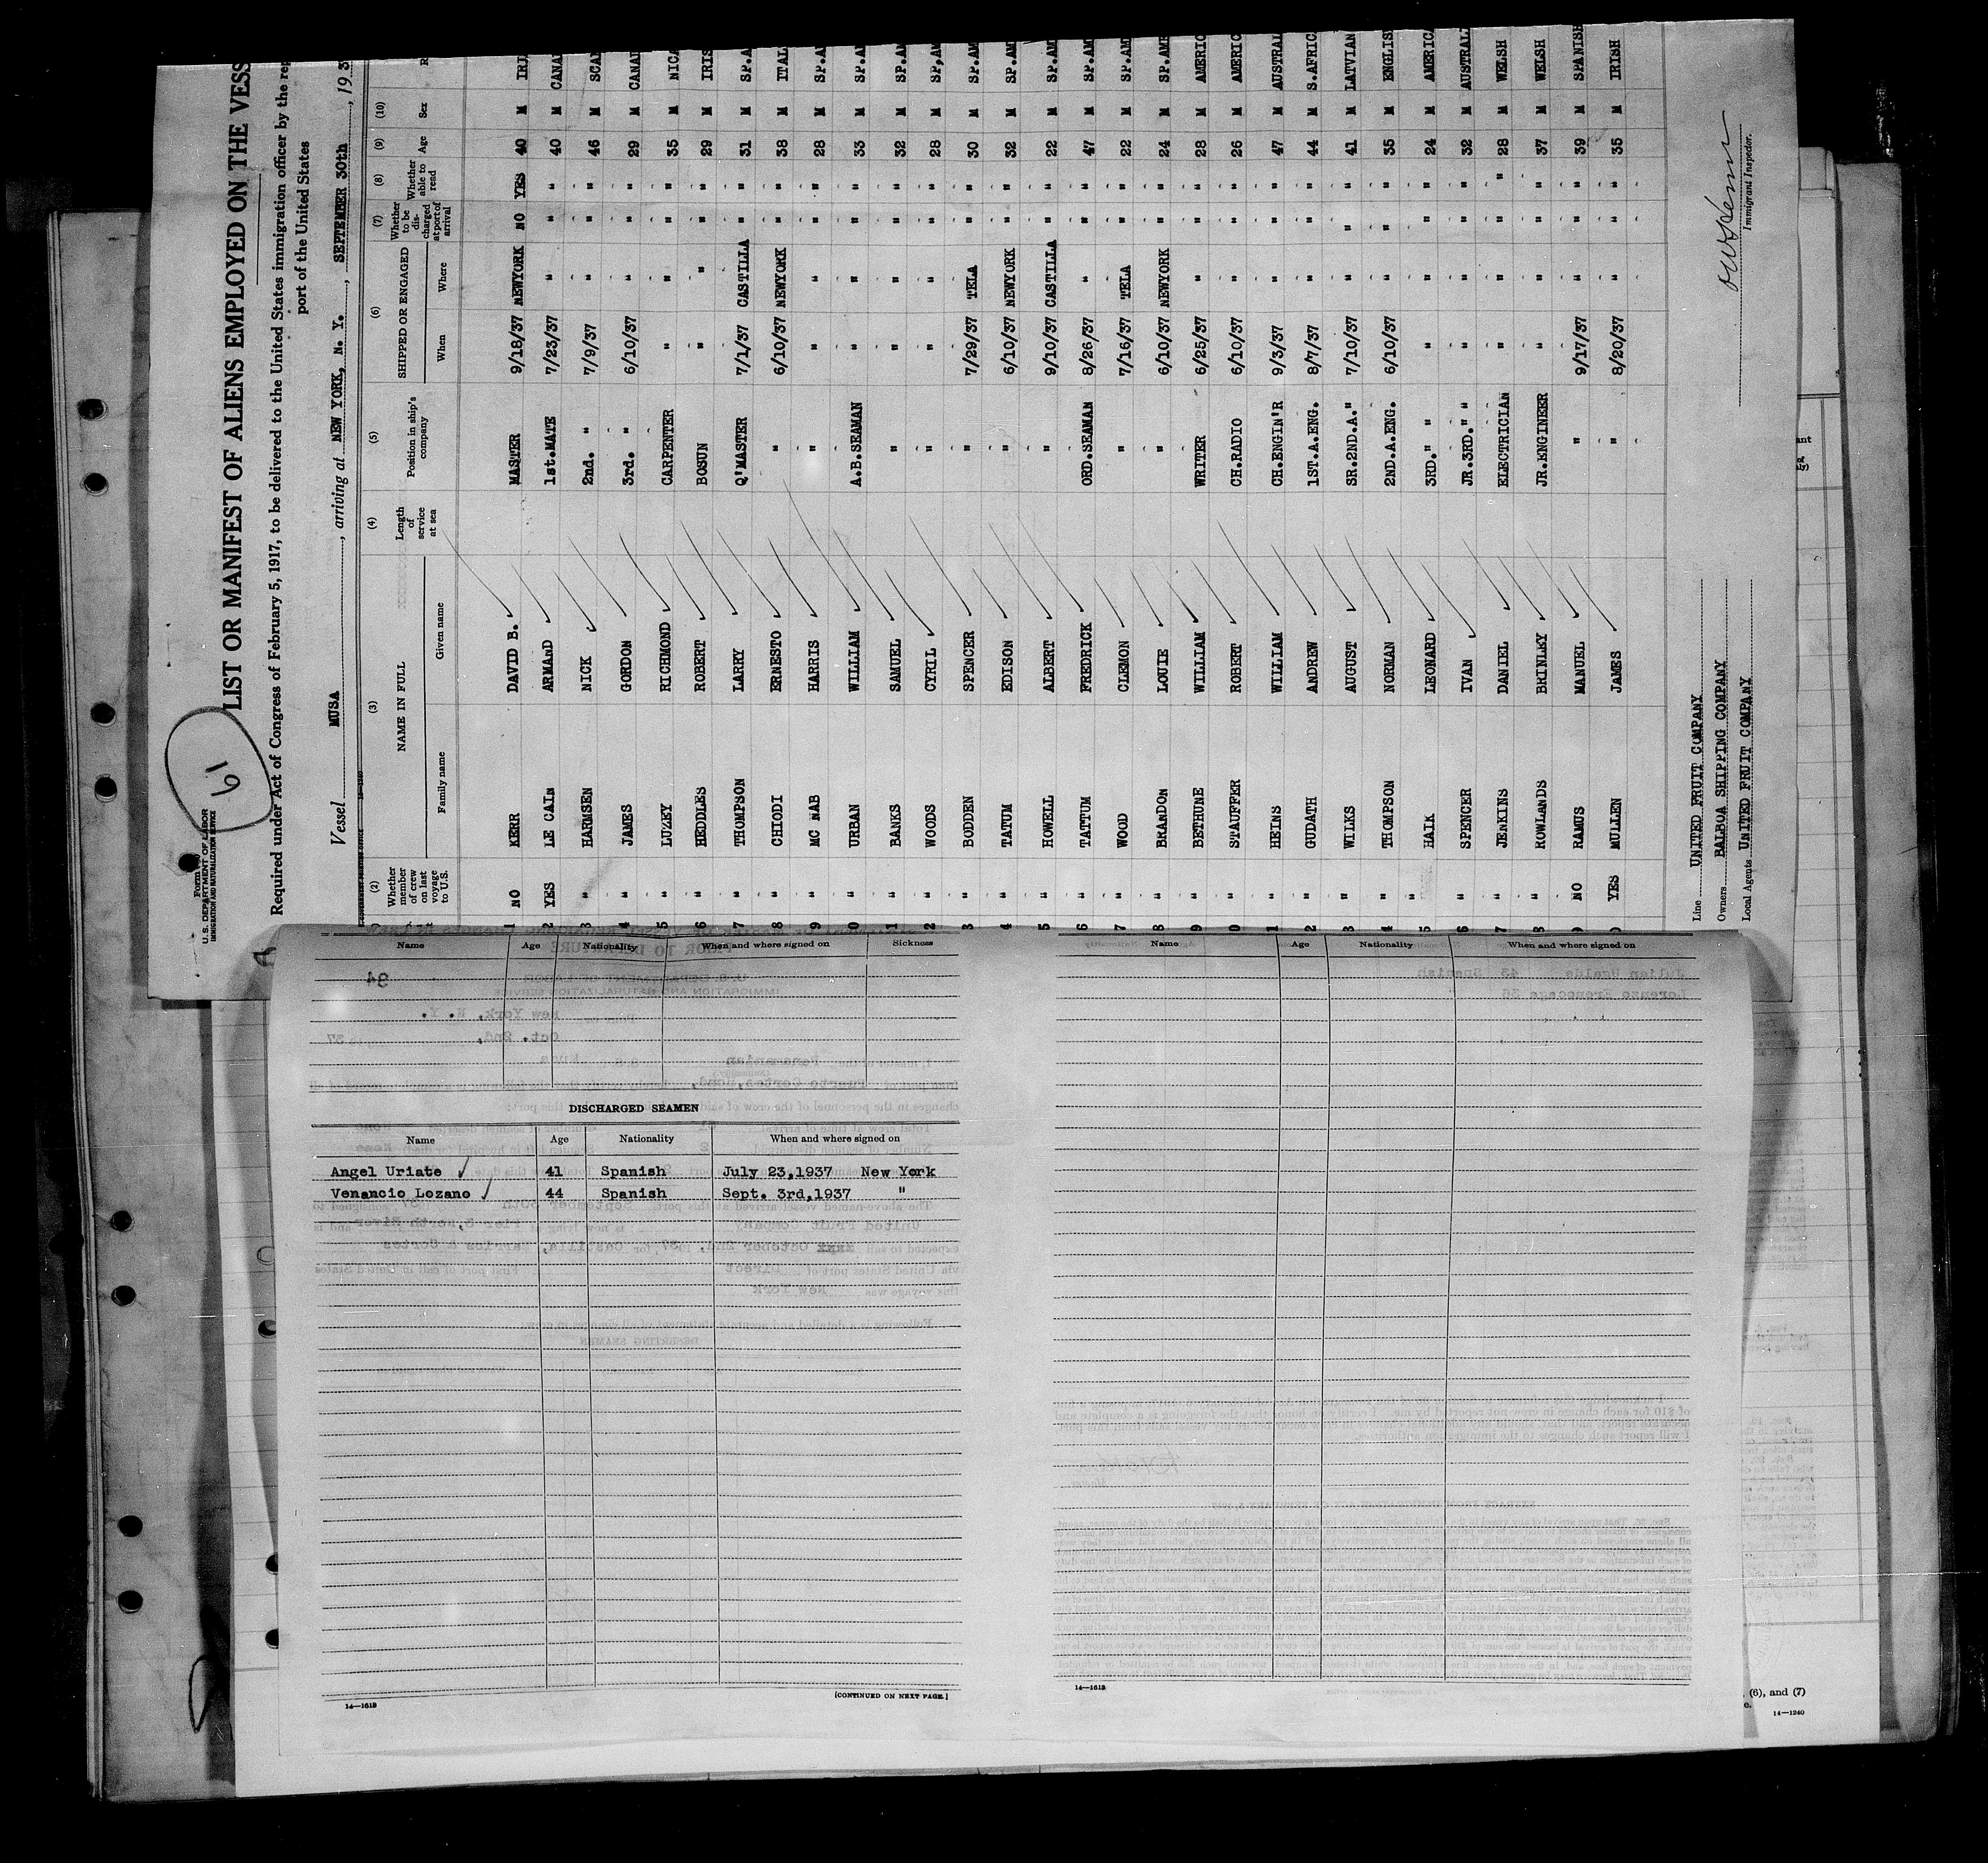 61
Form 680
U.S. DEPARTMENT OF LABOR
IMMIGRATION AND NATURALIZATION SERVICE
LIST OR MANIFEST OF ALIENS EMPLOYED ON THE VESS
Required under Act of Congress of February 5, 1917, to be delivered to the United States immigration officer by the rep
port of the United States
Vessel MUSA, arriving at NEW YORK, N. Y., SEPTEMBER 30th, 193
(2) (3) (4) (5) (6) (7) (8) (9) (10)
Whether member of crew on last voyage to U.S. NAME IN FULL Family name Given name Length of service at sea Position in ship's company SHIPPED OR ENGAGED When Where Whether to be discharged at port of arrival Whether able to read Age Sex R
1 NO KERR DAVID B. MASTER 9/18/37 NEWYORK NO YES 40 M IRI
2 YES LE CAIN ARMAND 1st.MATE 7/23/37 " " " 40 M CANAD
3 " HARMSEN NICK 2nd. " 7/9/37 " " " 46 M SCAN
4 " JAMES GORDON 3rd. " 6/10/37 " " " 29 M CANAD
5 " LUZEY RICHMOND CARPENTER " " " " 35 M NICA
6 " HEDDLES ROBERT BOSUN " " " " 29 M IRIS
7 " THOMPSON LARRY Q'MASTER 7/1/37 CASTILLA " " 31 M SP.A
8 " CHIODI ERNESTO " 6/10/37 NEWYORK " " 38 M ITAL
9 " MC NAB HARRIS " " " " " 28 M SP.A
0 " URBAN WILLIAM A.B.SEAMAN " " " " 33 M SP.A
1 " BANKS SAMUEL " " " " " 32 M SP.A
2 " WOODS CYRIL " " " " " 28 M SP.AM
3 " BODDEN SPENCER " 7/29/37 TELA " " 30 M SP.AM
4 " TATUM EDISON " 6/10/37 NEWYORK " " 32 M SP.AM
5 " HOWELL ALBERT " 9/10/37 CASTILLA " " 22 M SP.AM
6 " TATTUM FREDRICK ORD.SEAMAN 8/26/37 " " " 47 M SP.AM
7 " WOOD CLEMON " 7/16/37 TELA " " 22 M SP.AM
8 " BRANDON LOUIE " 6/10/37 NEWYORK " " 24 M SP.AME
9 " BETHUNE WILLIAM WRITER 6/25/37 " " " 28 M AMERIC
0 " STAUFFER ROBERT CH.RADIO 6/10/37 " " " 26 M AMERIC
1 " HEINS WILLIAM CH.ENGIN'R 9/3/37 " " " 47 M AUSTRAL
2 " GUDATH ANDREW 1ST.A.ENG. 8/7/37 " " " 44 M S.AFRIC
3 " WILKS AUGUST SR.2ND.A." 7/10/37 " " " 41 M LATVIAN
4 " THOMPSON NORMAN 2ND.A.ENG. 6/10/37 " " " 35 M ENGLIS
5 " HAIK LEONARD 3RD." " " " " " 24 M AMERICA
6 " SPENCER IVAN JR.3RD." " " " " " 32 M AUSTRAL
7 " JENKINS DANIEL ELECTRICIAN " " " " 28 M WELSH
8 " ROWLANDS BRINLEY JR.ENGINEER " " " " 37 M WELSH
9 NO RAMUS MANUEL " 9/17/37 " " " 39 M SPANISH
0 YES MULLEN JAMES " 8/20/37 " " " 35 M IRISH
Line UNITED FRUIT COMPANY
Owners BALBOA SHIPPING COMPANY
Local Agents UNITED FRUIT COMPANY
Immigrant Inspector.
Name Age Nationality When and where signed on Sickness
DISCHARGED SEAMEN
Name Age Nationality When and where signed on
Angel Uriate 41 Spanish July 23,1937 New York
Venancio Lozano 44 Spanish Sept. 3rd,1937 "
[CONTINUED ON NEXT PAGE.]
14—1613
Name Age Nationality When and where signed on
14—1613
, (6), and (7)
14—1240